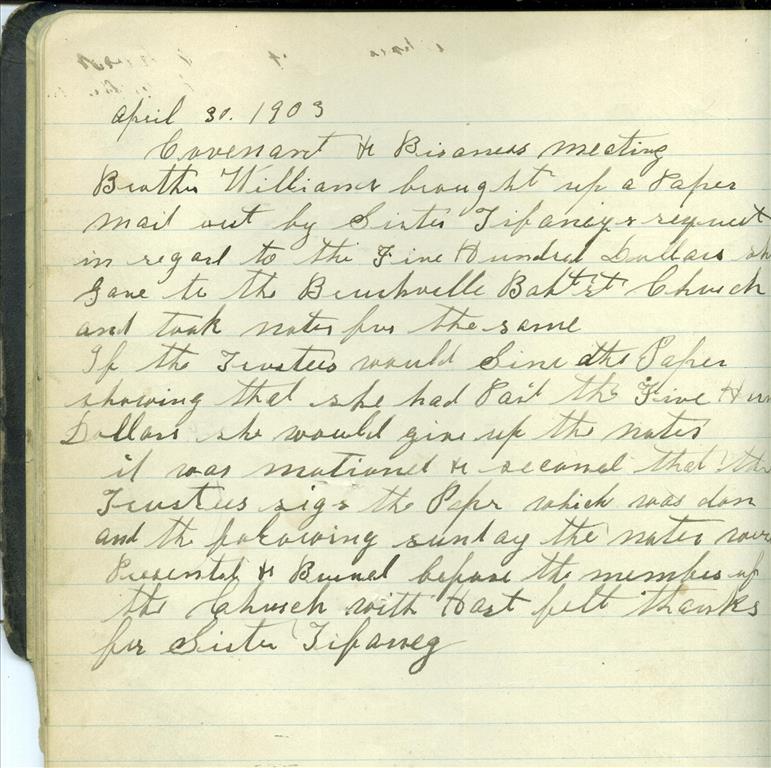 April 30. 1903
Covenant & Bisaness meating
Brother Williams brought up a Paper
mad out by Sister Tifaneys request
in regard to the Five Hundred Dollars sh
gave to the Baptist Church
and took notes for the same
If the Trustees would Sine the Paper
showing that she had Paid the Five Hun
Dollars she would give up the notes
it was motioned & second that the
Trustees sign the Paper which was don
and the folowing sunday the notes wer
Presented & Burned before the members of
the Church with Hart felt thanks
for Sister Tifaney